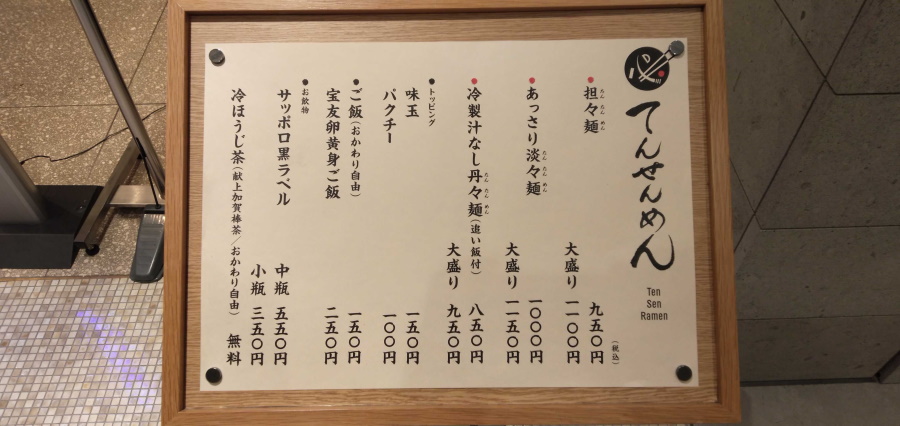 てんせんめん
Ten
Sen
Ramen
担々麺 九五〇円（税込）
たんたんめん
大盛り 一一〇〇円
あっさり淡々麺 一〇〇〇円
たんたんめん
大盛り 一一五〇円
冷製汁なし丹々麺（追い飯付） 八五〇円
たんたんめん
大盛り 九五〇円
●トッピング
味玉 一五〇円
パクチー 一〇〇円
●ご飯（おかわり自由） 一五〇円
宝友卵黄身ご飯 二五〇円
●お飲物
サッポロ黒ラベル 中瓶 五五〇円
小瓶 三五〇円
冷ほうじ茶（献上加賀棒茶／おかわり自由） 無料